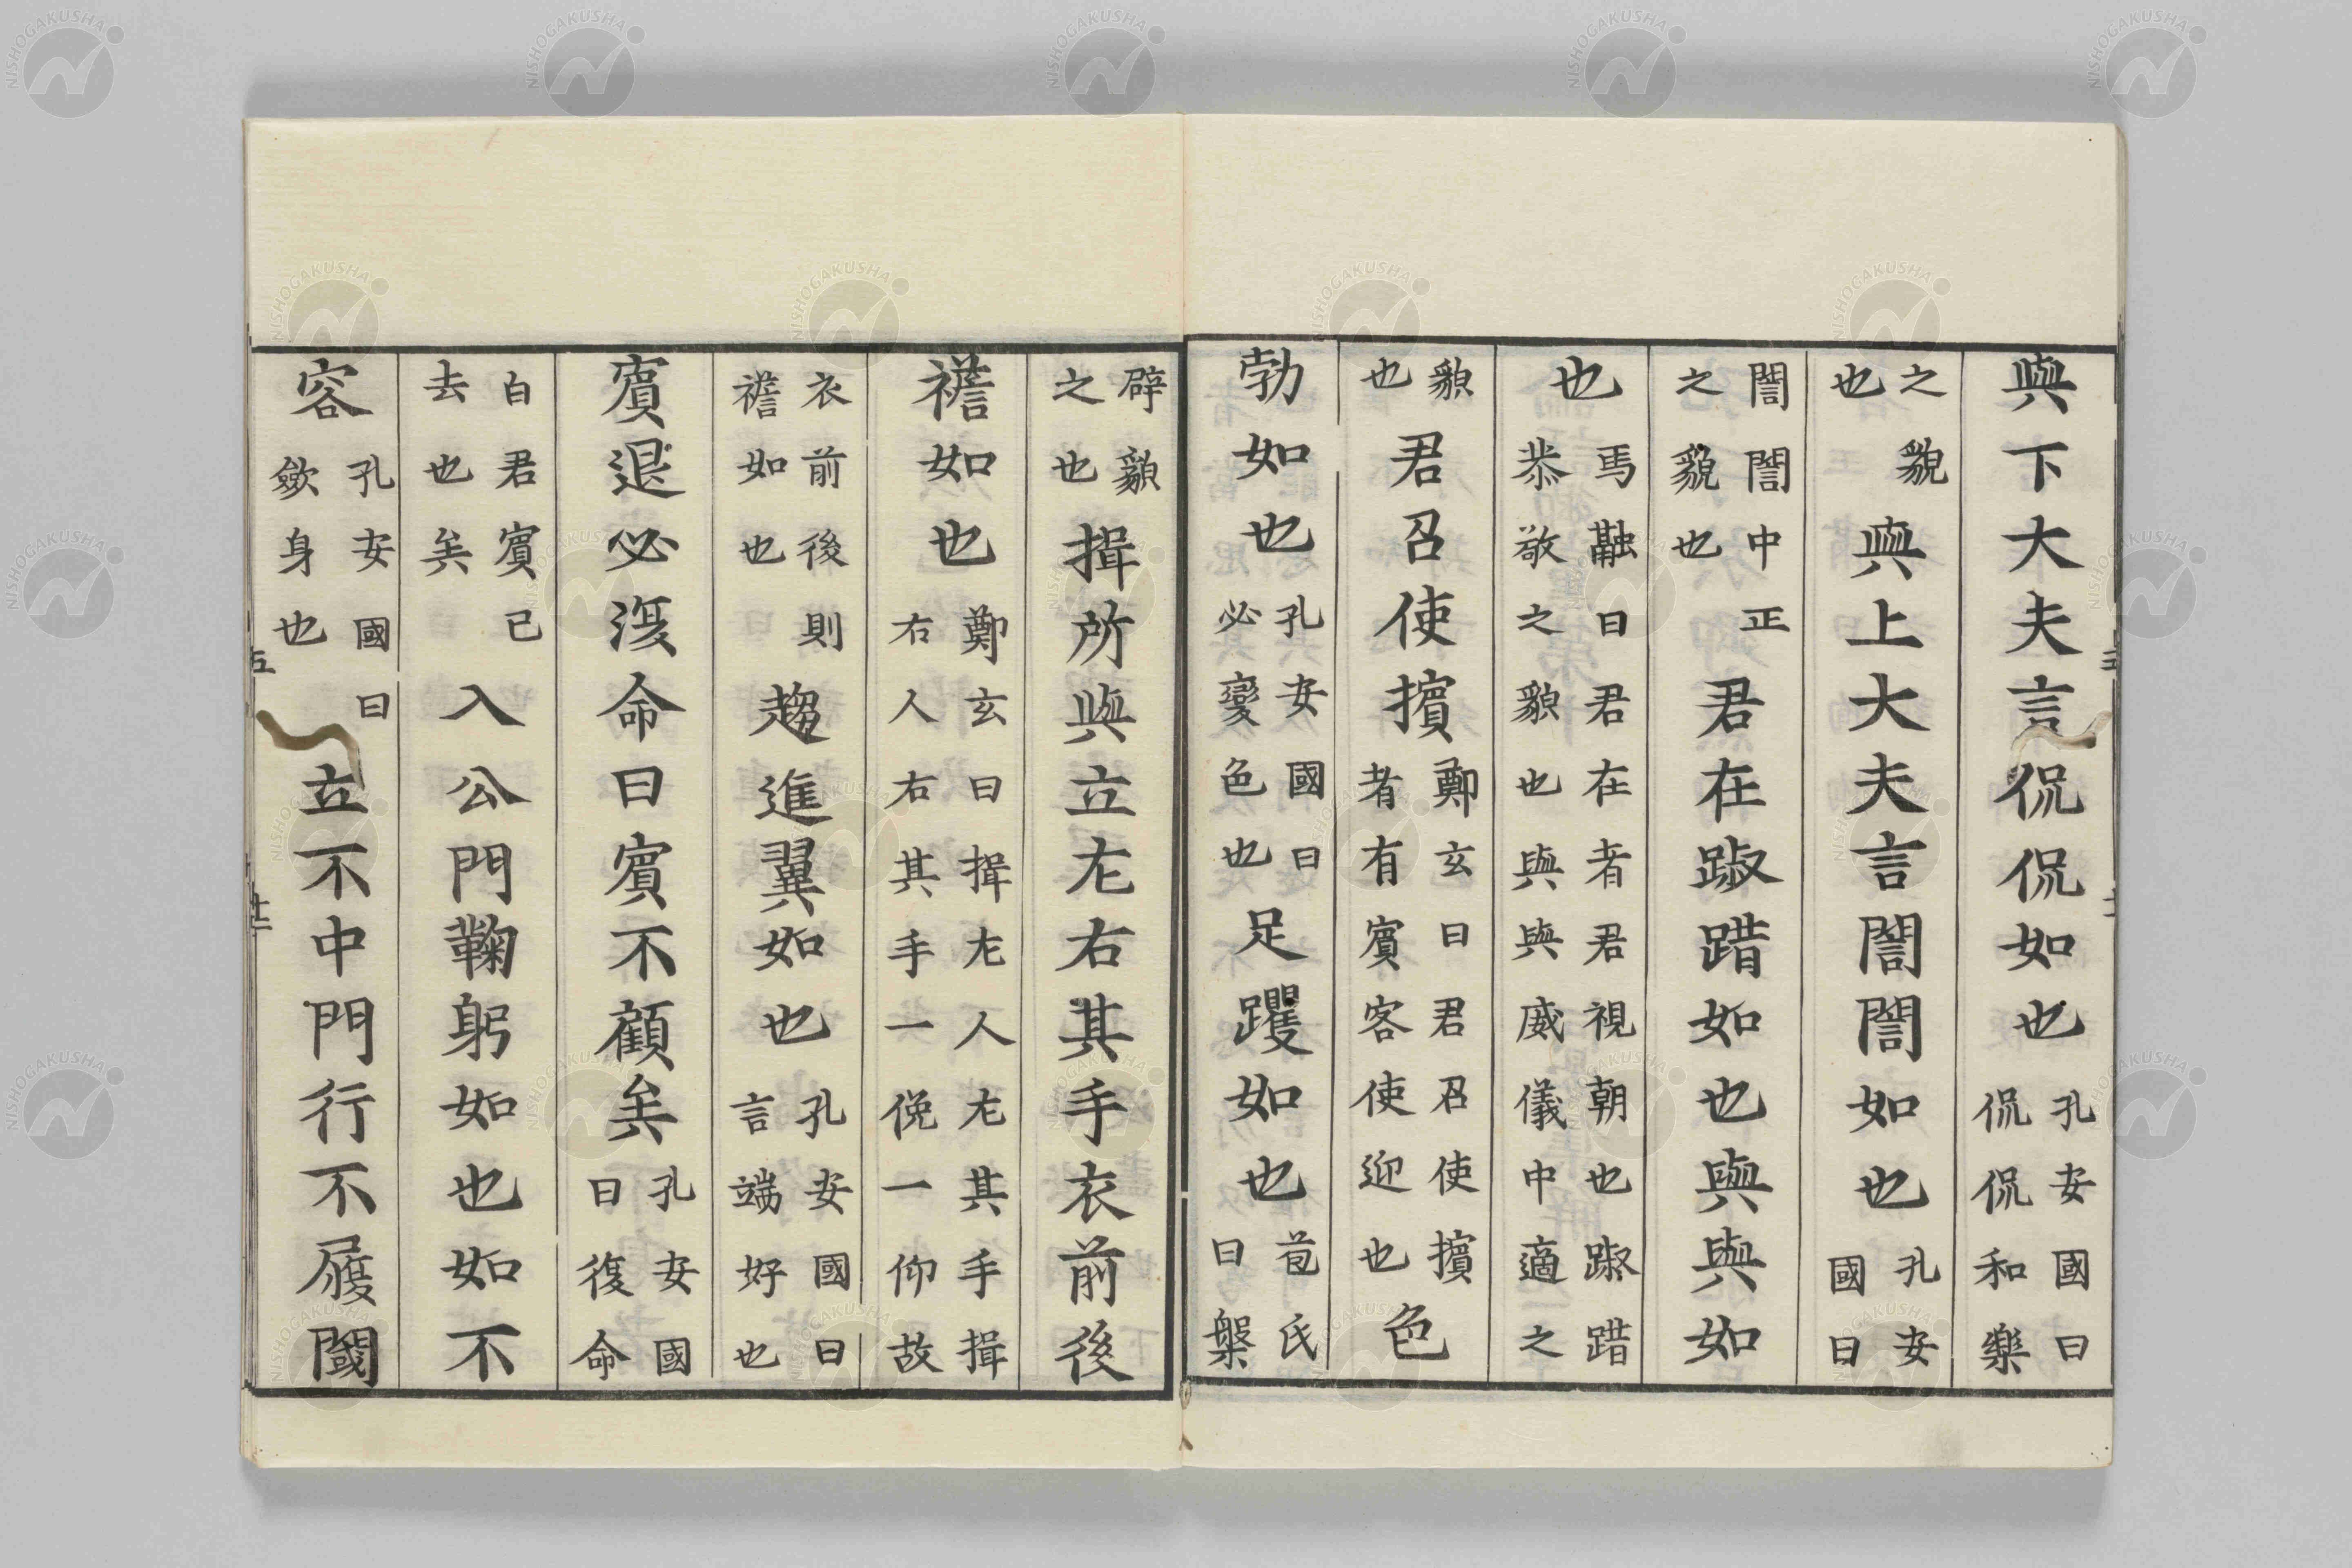 與下大夫言侃侃如也孔安國曰侃侃和樂
之貌也與上大夫言誾誾如也孔安國曰
誾誾中正之貌也君在踧踖如也與與如
也馬融曰君在者君視朝也踧踖恭敬之貌也與與威儀中適之
貌也君召使擯鄭玄曰君召使擯者有賓客使迎也色
勃如也孔安國曰必變色也足躩如也苞氏曰槃
辟貌之也揖所與立左右其手衣前後
襜如也鄭玄曰揖左人左其手揖右人右其手一俛一仰故
衣前後則襜如也趨進翼如也孔安國曰言端好也
賓退必復命曰賓不顧矣孔安國曰復命
白君賓已去也矣入公門鞠躬如也如不
容孔安國曰斂身也立不中門行不履閾
NISHOGAKUSHA